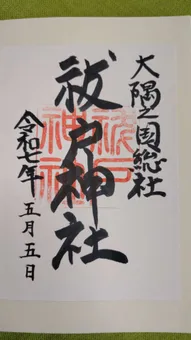 大隅之国総社
祓戸神社
令和七年五月五日